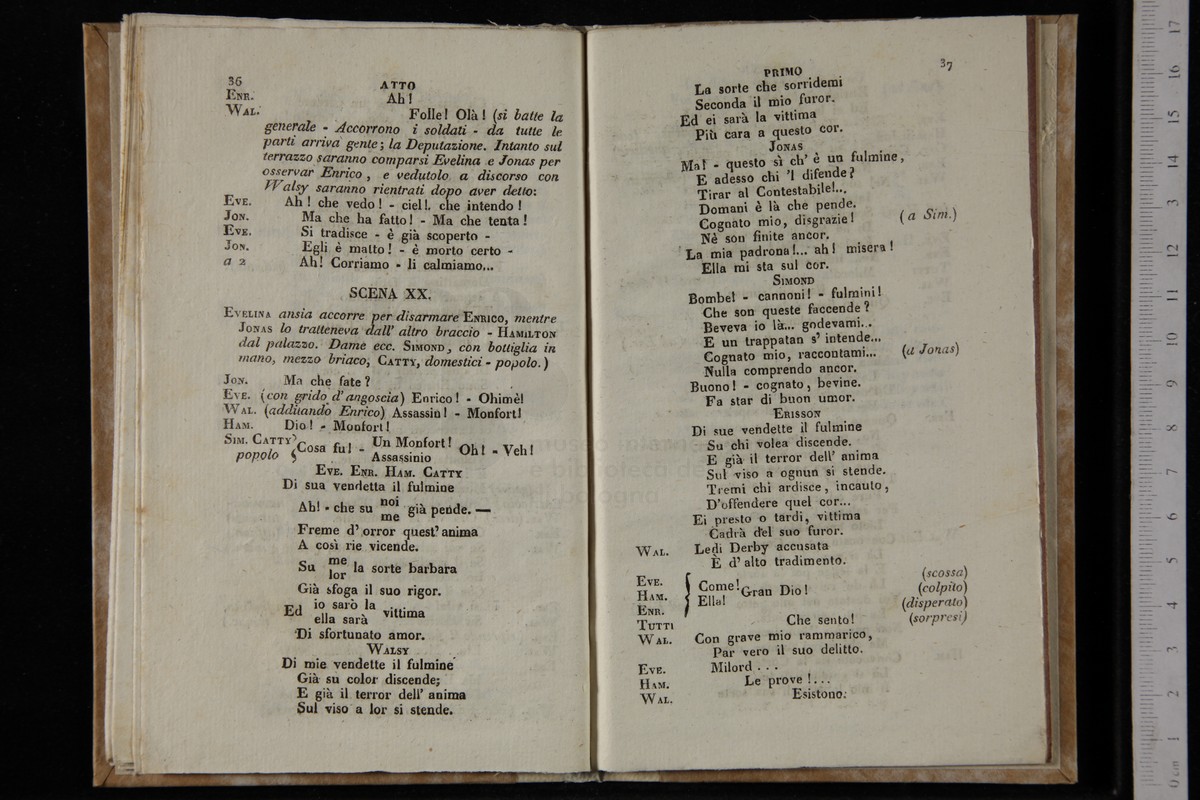 36
ATTO
ENR. Ah!
WAL. Folle! Olà! (si batte la
generale - Accorrono i soldati - da tutte le
parti arriva gente; la Deputazione. Intanto sul
terrazzo saranno comparsi Evelina e Jonas per
osservar Enrico, e vedutolo a discorso con
Walsy saranno rientrati dopo aver detto:
EVE. Ah! che vedo! - ciel!. che intendo!
JON. Ma che ha fatto! - Ma che tenta!
EVE. Si tradisce - è già scoperto -
JON. Egli è matto! - è morto certo -
a 2 Ah! Corriamo - li calmiamo...
SCENA XX.
EVELINA ansia accorre per disarmare ENRICO, mentre
JONAS lo tratteneva dall' altro braccio - HAMILTON
dal palazzo. Dame ecc. SIMOND, con bottiglia in
mano, mezzo briaco, CATTY, domestici - popolo.)
JON. Ma che fate?
EVE. (con grido d'angoscia) Enrico! - Ohimè!
WAL. (additando Enrico) Assassin! - Monfort!
HAM. Dio! - Monfort!
SIM. CATTY popolo } Cosa fu! - Un Monfort! Assassinio Oh! - Veh!
EVE. ENR. HAM. CATTY
Di sua vendetta il fulmine
Ah! - che su noi me già pende. —
Freme d' orror quest' anima
A così rie vicende.
Su me lor la sorte barbara
Già sfoga il suo rigor.
Ed io sarò la ella sarà vittima
Di sfortunato amor.
WALSY
Di mie vendette il fulmine
Già su color discende;
E già il terror dell' anima
Sul viso a lor si stende.
PRIMO
37
La sorte che sorridemi
Seconda il mio furor.
Ed ei sarà la vittima
Più cara a questo cor.
JONAS
Ma! - questo sì ch' è un fulmine,
E adesso chi 'l difende?
Tirar al Contestabile!...
Domani è là che pende.
Cognato mio, disgrazie! (a Sim.)
Nè son finite ancor.
La mia padrona!... ah! misera!
Ella mi sta sul cor.
SIMOND
Bombe! - cannoni! - fulmini!
Che son queste faccende?
Beveva io là... godevami..
E un trappatan s' intende...
Cognato mio, raccontami... (a Jonas)
Nulla comprendo ancor.
Buono! - cognato, bevine.
Fa star di buon umor.
ERISSON
Di sue vendette il fulmine
Su chi volea discende.
E già il terror dell' anima
Sul viso a ognun si stende.
Tremi chi ardisce, incauto,
D'offendere quel cor...
Ei presto o tardi, vittima
Cadrà del suo furor.
WAL. Ledi Derby accusata
È d' alto tradimento.
EVE. (scossa)
HAM. { Come! Ella! Gran Dio! (colpito)
ENR. (disperato)
TUTTI Che sento! (sorpresi)
WAL. Con grave mio rammarico,
Par vero il suo delitto.
EVE. Milord . . .
HAM. Le prove!...
WAL. Esistono.